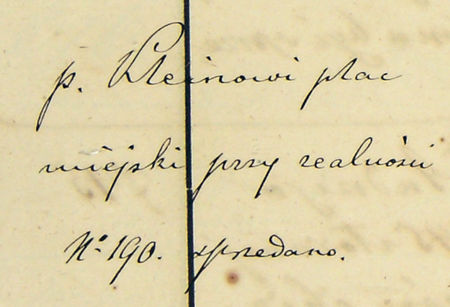 p. Kleinowi plac
miejski przy realności
No. 190. sprzedano.